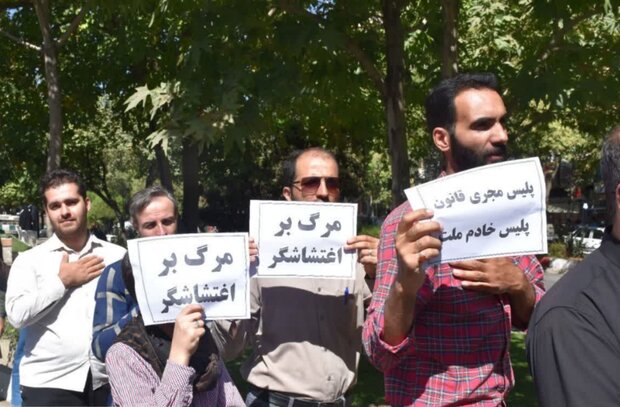 مرگ بر
اغتشاشگر
مرگ بر
اغتشاشگر
پلیس مجری قانون
پلیس خادم ملت